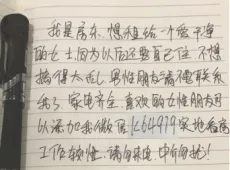 我是房东，想租给一个爱干净
的女士因为以后还要自己住，不想
搞得太乱，男性朋友请不要联系
我了，家电齐全，喜欢的女性朋友可
以添加我微信k64919实地看房
工作较忙，请勿来电，中介勿扰！